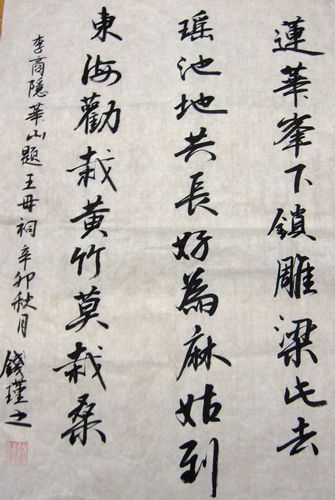 蓮華峯下鎖雕梁此去
瑶池地共長好為麻姑到
東海勸栽黃竹莫栽桑
李商隱華山題王母祠辛卯秋月
錢瑾之